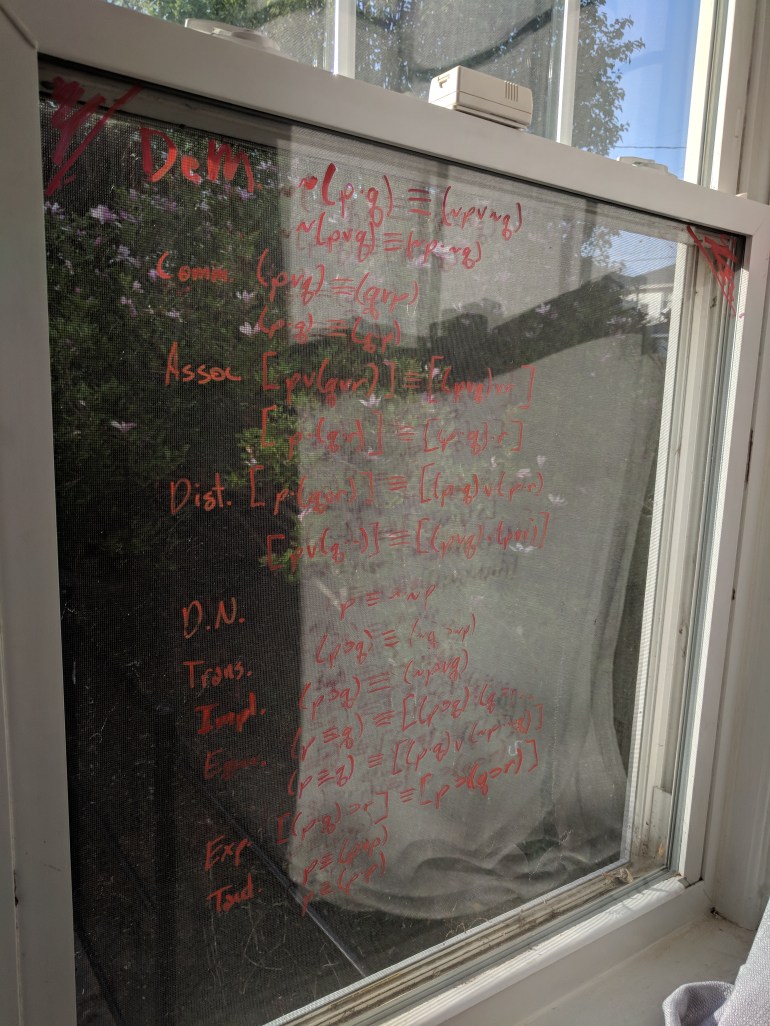 DeM. ~(p·q) ≡ (~pv~q)
~(pvq) ≡ (~p·~q)
Comm. (pvq) ≡ (qvp)
(p·q) ≡ (q·p)
Assoc [pv(qvr)] ≡ [(pvq)vr]
[p·(q·r)] ≡ [(p·q)·r]
Dist. [p·(qvr)] ≡ [(p·q)v(p·r)
[pv(q·r)] ≡ [(pvq)·(pvr)]
D.N. p ≡ ~~p
Trans. (p⊃q) ≡ (~q⊃~p)
Impl. (p⊃q) ≡ (~pvq)
(p≡q) ≡ [(p⊃q)·(q
(p≡q) ≡ [(p·q)v(~p·~q)]
Exp. [(p·q)⊃r] ≡ [p⊃(q⊃r)]
Taut p≡(pvp)
p≡(p·p)